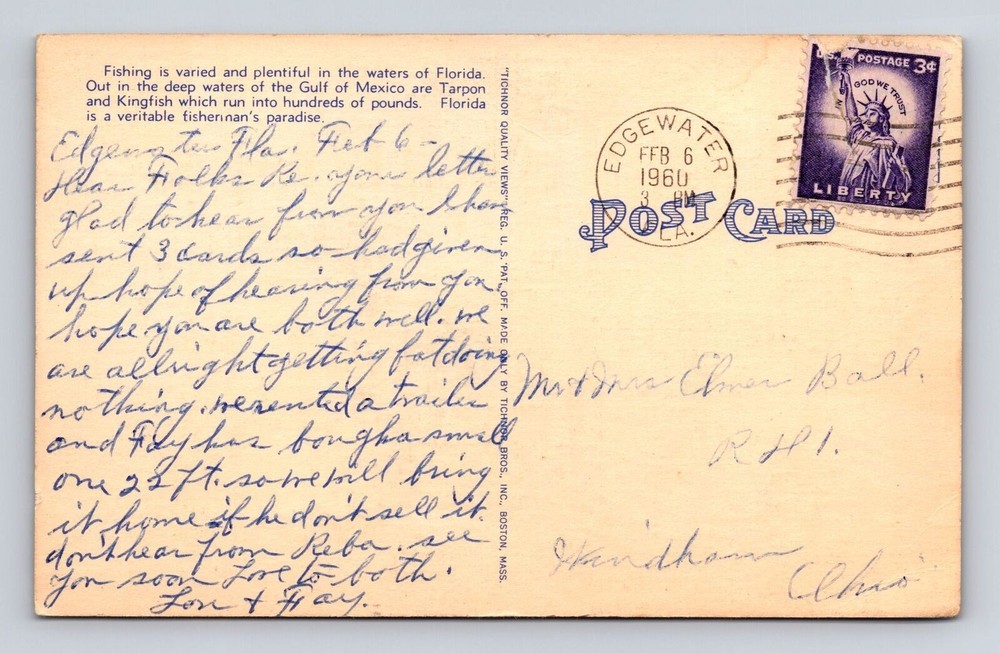 Fishing is varied and plentiful in the waters of Florida.
Out in the deep waters of the Gulf of Mexico are Tarpon
and Kingfish which run into hundreds of pounds. Florida
is a veritable fisherman's paradise.
Edgewater Fla. Feb 6 -
Dear Folks Re. your letter
glad to hear from you I have
sent 3 cards so had given
up hope of hearing from you.
hope you are both well. we
are allright getting fat doing
nothing. we rented a trailer
and Fay has bought a small
one 22 ft. so we will bring
it home if he don't sell it.
don't hear from Reba. see
you soon Love to both.
Lou + Fay.
"TICHNOR QUALITY VIEWS" REG. U. S. PAT. OFF. MADE ONLY BY TICHNOR BROS., INC., BOSTON, MASS.
EDGEWATER
FEB 6
1960
3 PM
FLA.
POST CARD
U.S. POSTAGE 3¢
IN GOD WE TRUST
LIBERTY
Mr & Mrs Elmer Ball.
R # 1.
Windham
Ohio